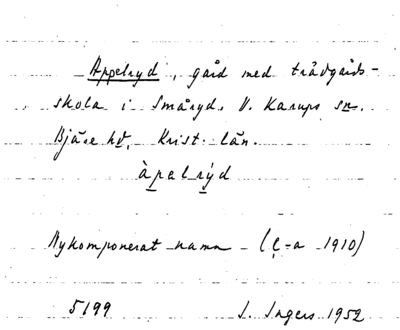 Appelryd, gård med trädgårds-
skola i Småryd. V. Karups sn.
Bjäre hd, Krist. län.
àpalrýd
Nykomponerat namn (c:a 1910)
5199 I. Ingers 1952